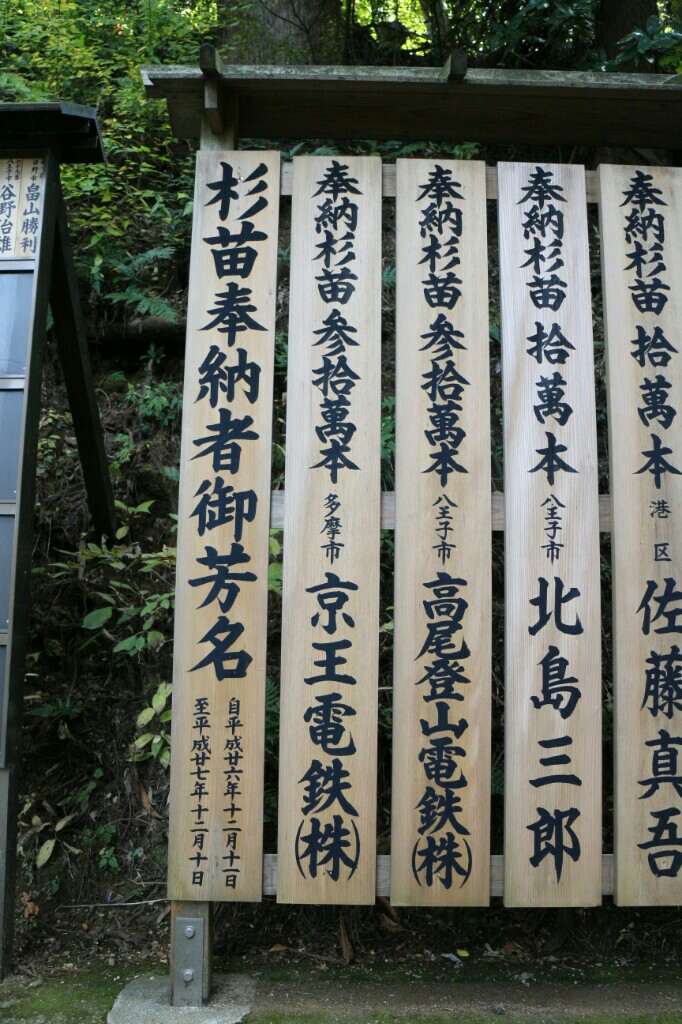 杉苗奉納者御芳名
自平成廿六年十二月十一日
至平成廿七年十二月十日
奉納杉苗参拾萬本 多摩市 京王電鉄(株)
奉納杉苗参拾萬本 八王子市 高尾登山電鉄(株)
奉納杉苗拾萬本 八王子市 北島三郎
奉納杉苗拾萬本 港区 佐藤真吾
畠山勝利
谷野治雄